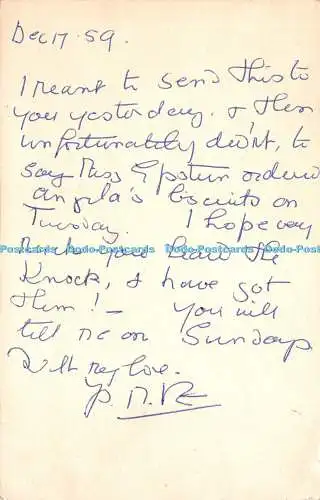 Dec 17. 59.
I meant to send this to
you yesterday. & then
unfortunately didn't, to
say Miss Epstein ordered
Angela's biscuits on
Tuesday. I hope very
much you hear the
Dodo-Postcards Dodo-Postcards Dodo-Postcards Dodo-Postcards
Knock, & have got
them! - you will
tell me on Sunday
With my love.